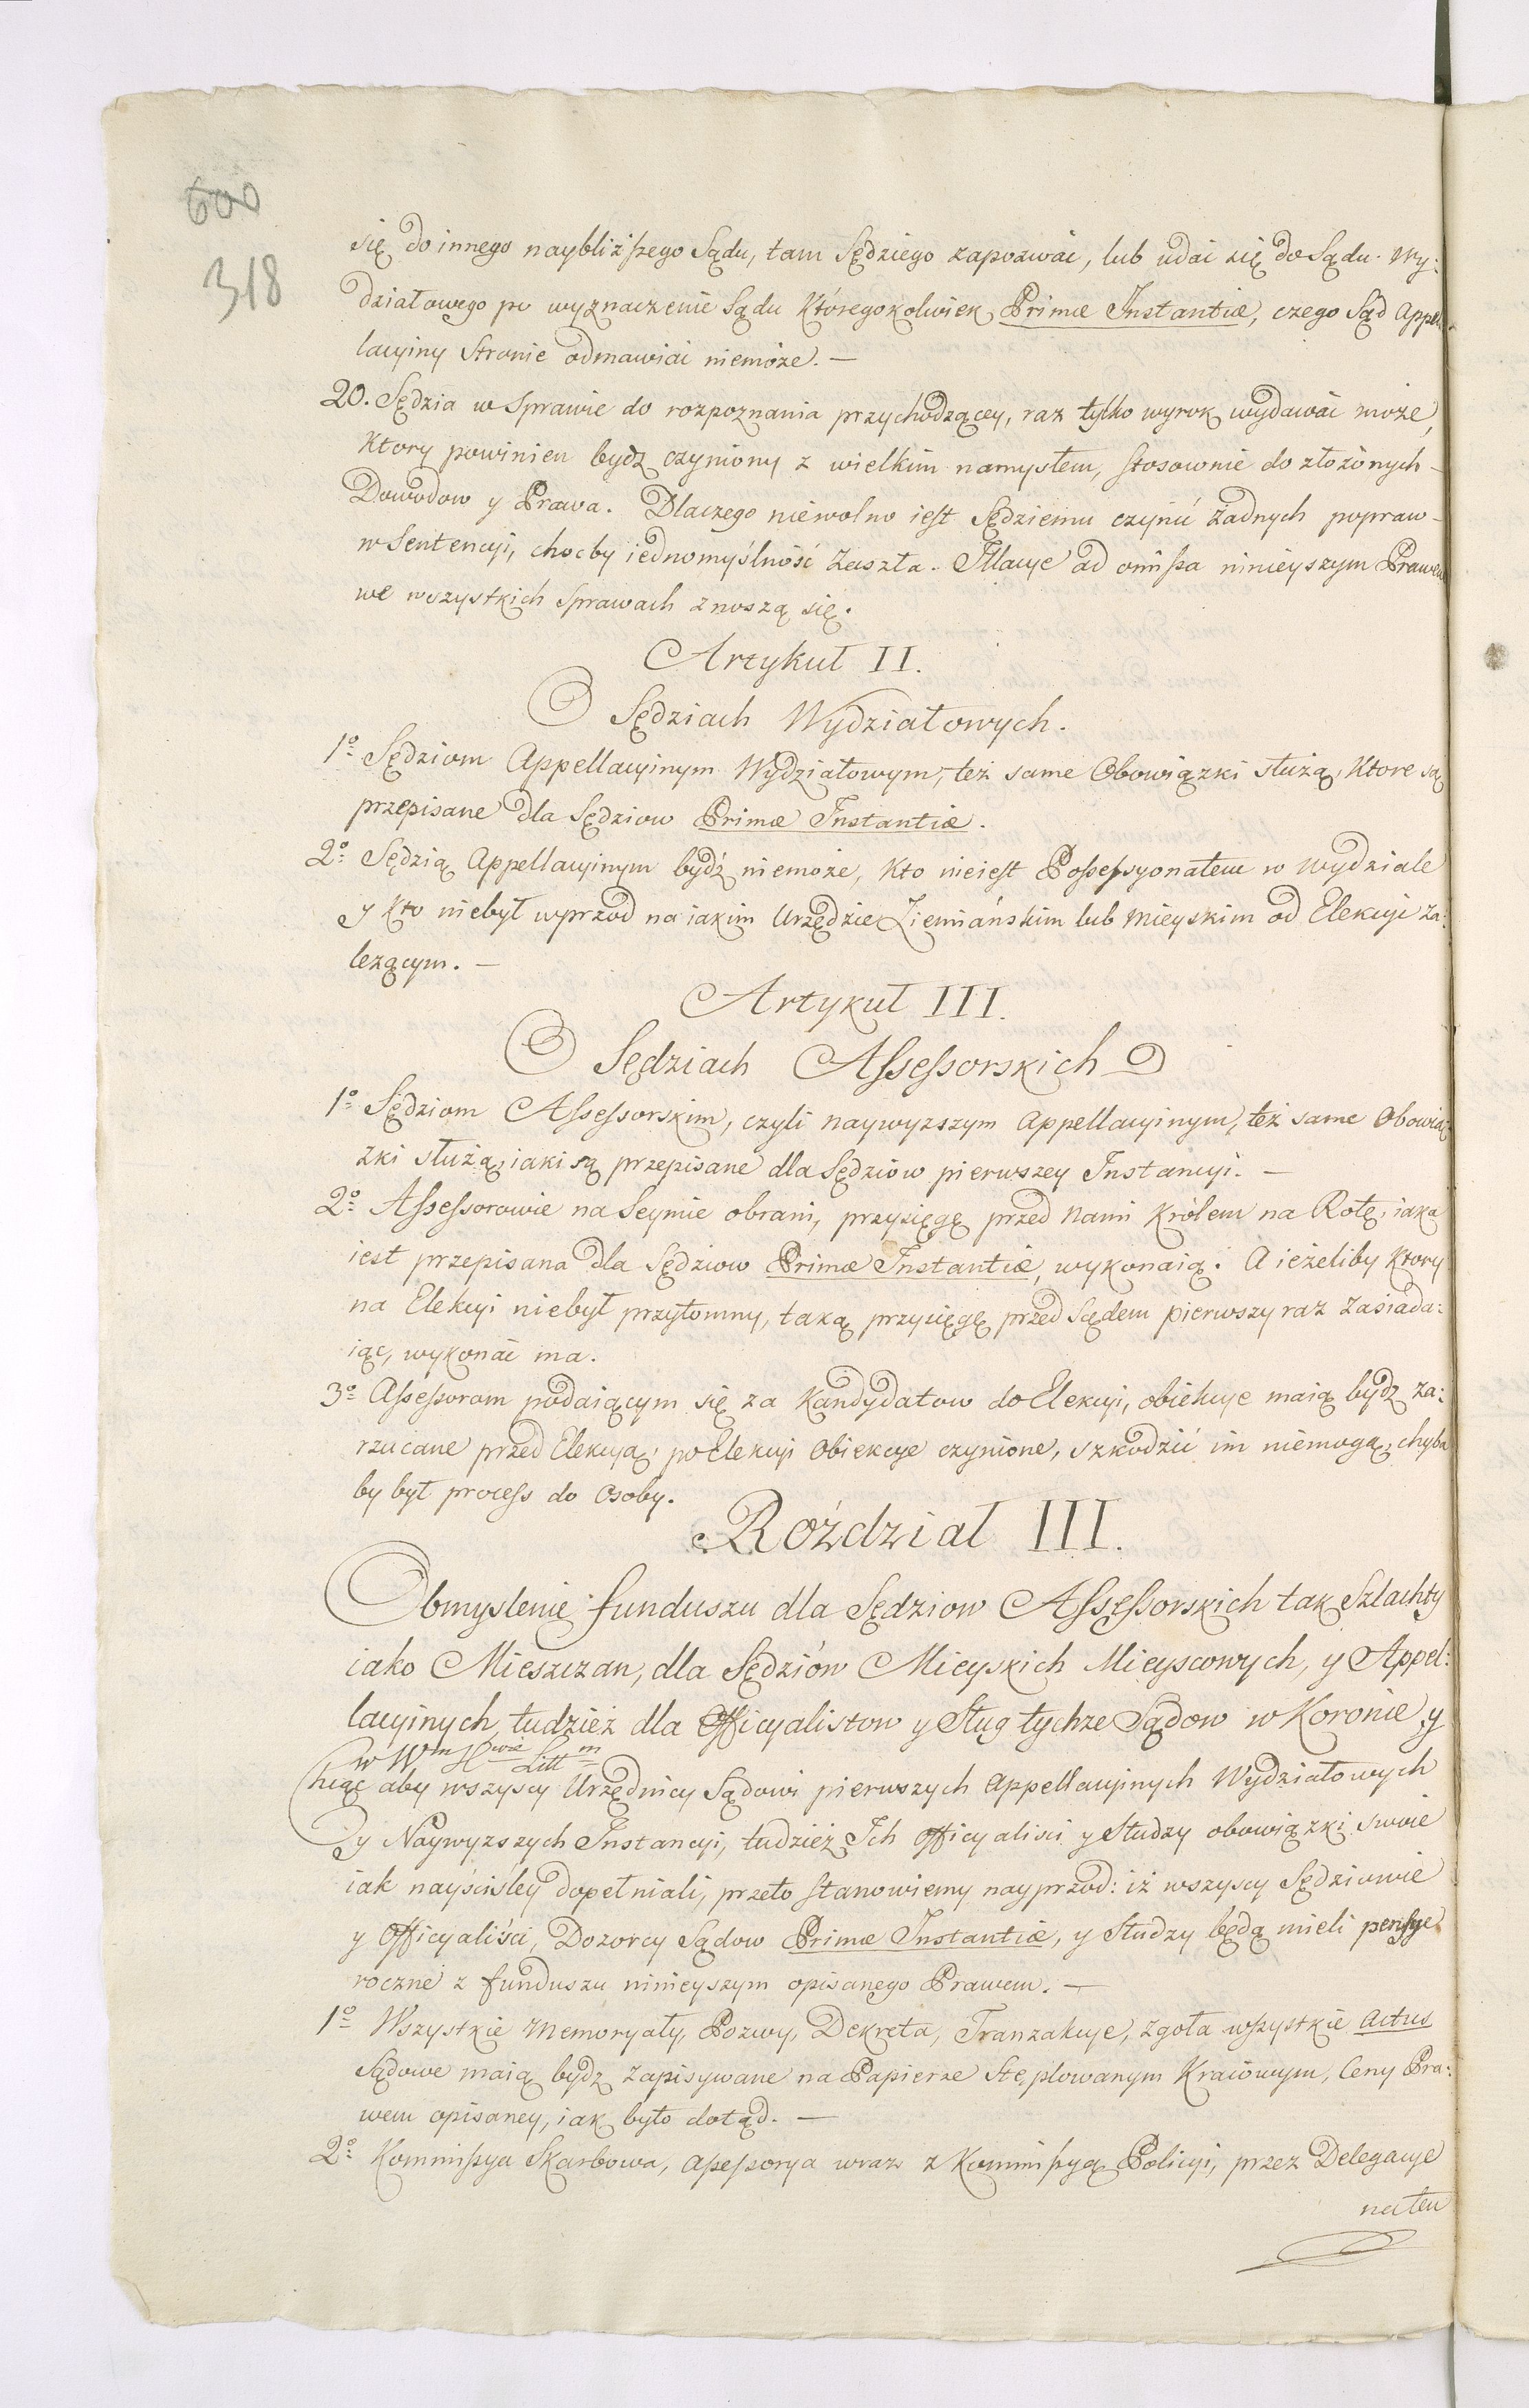 600
318
się do innego naybliższego Sądu, tam Sędziego zapozwać, lub udać się do Sądu Wy:
działowego po wyznaczenie Sądu któregokolwiek Primæ Instantiæ, czego Sąd Appel
lacyiny Stronie odmawiać niemoże. —
20. Sędzia w Sprawie do rozpoznania przychodzącey, raz tylko wyrok wydawać może,
ktory powinien bydz czyniony z wielkim namysłem, stosownie do złożonych
Dowodow y Prawa. Dlaczego niewolno iest Sędziemu czynić żadnych popraw
w Sentencyi, choćby iednomyślność zaszła. Illacye ad omissa ninieyszym Prawem
we wszystkich Sprawach znoszą się.
Artykuł II.
O Sędziach Wydziałowych.
1º Sędziom Appellacyinym Wydziałowym, też same Obowiązki służą, ktore są
przepisane dla Sędziow Primæ Instantiæ.
2º Sędzią Appellacyinym bydź niemoże, kto nieiest Possessyonatem w Wydziale
y kto niebył wprzod na iakim Urzędzie Ziemiańskim lub Mieyskim od Elekcyi za:
leżącym. —
Artykuł III.
O Sędziach Assessorskich
1º Sędziom Assessorskim, czyli naywyzszym Appellacyinym, też same Obowią
zki służą, iaki są przepisane dla Sędziów pierwszey Instancyi. —
2º Assessorowie na Seymie obrani, przysięgę przed Nami Królem na Rotę, iaka
iest przepisana dla Sędziow Primæ Instantiæ, wykonaią. A ieżeliby ktory
na Elekcyi niebył przytomny, taką przysięgę przed Sądem pierwszy raz zasiada:
iąc, wykonać ma.
3º Assessorom podaiącym się za Kandydatow do Elekcyi, obiekcye maią bydz za:
rzucane przed Elekcyą, po Elekcyi Obiekcye czynione, szkodzić im niemogą, chyba
by był process do Osoby.
Roździał III.
Obmyslenie funduszu dla Sędziow Assessorskich tak Szlachty
iako Mieszczan, dla Sędziów Mieyskich Mieyscowych, y Appel:
lacyinych, tudzież dla Officyalistow y Sług tychze Sądow w Koronie y
w Wm Xwie Littm
Chcąc aby wszyscy Urzędnicy Sądowi pierwszych Appellacyinych Wydziałowych
y Naywyzszych Instancyi, tudzież Ich Officyaliści y Słudzy obowiązki swoie
iak nayściśley dopełniali, przeto stanowiemy nayprzod: iż wszyscy Sędziowie
y Officyaliści, Dozorcy Sądow Primæ Instantiæ, y Słudzy będą mieli pensye
roczne z funduszu ninieyszym opisanego Prawem. —
1º Wszystkie Memoryały, Pozwy, Dekreta, Tranzakcye, zgoła wszystkie Actus
Sądowe maią bydz zapisywane na Papierze Stęplowanym Kraiowym, Ceny Pra:
wem opisaney, iak było dotąd. —
2º Kommissya Skarbowa, Assessorya wraz z Kommissyą Policyi, przez Delegacye
na ten